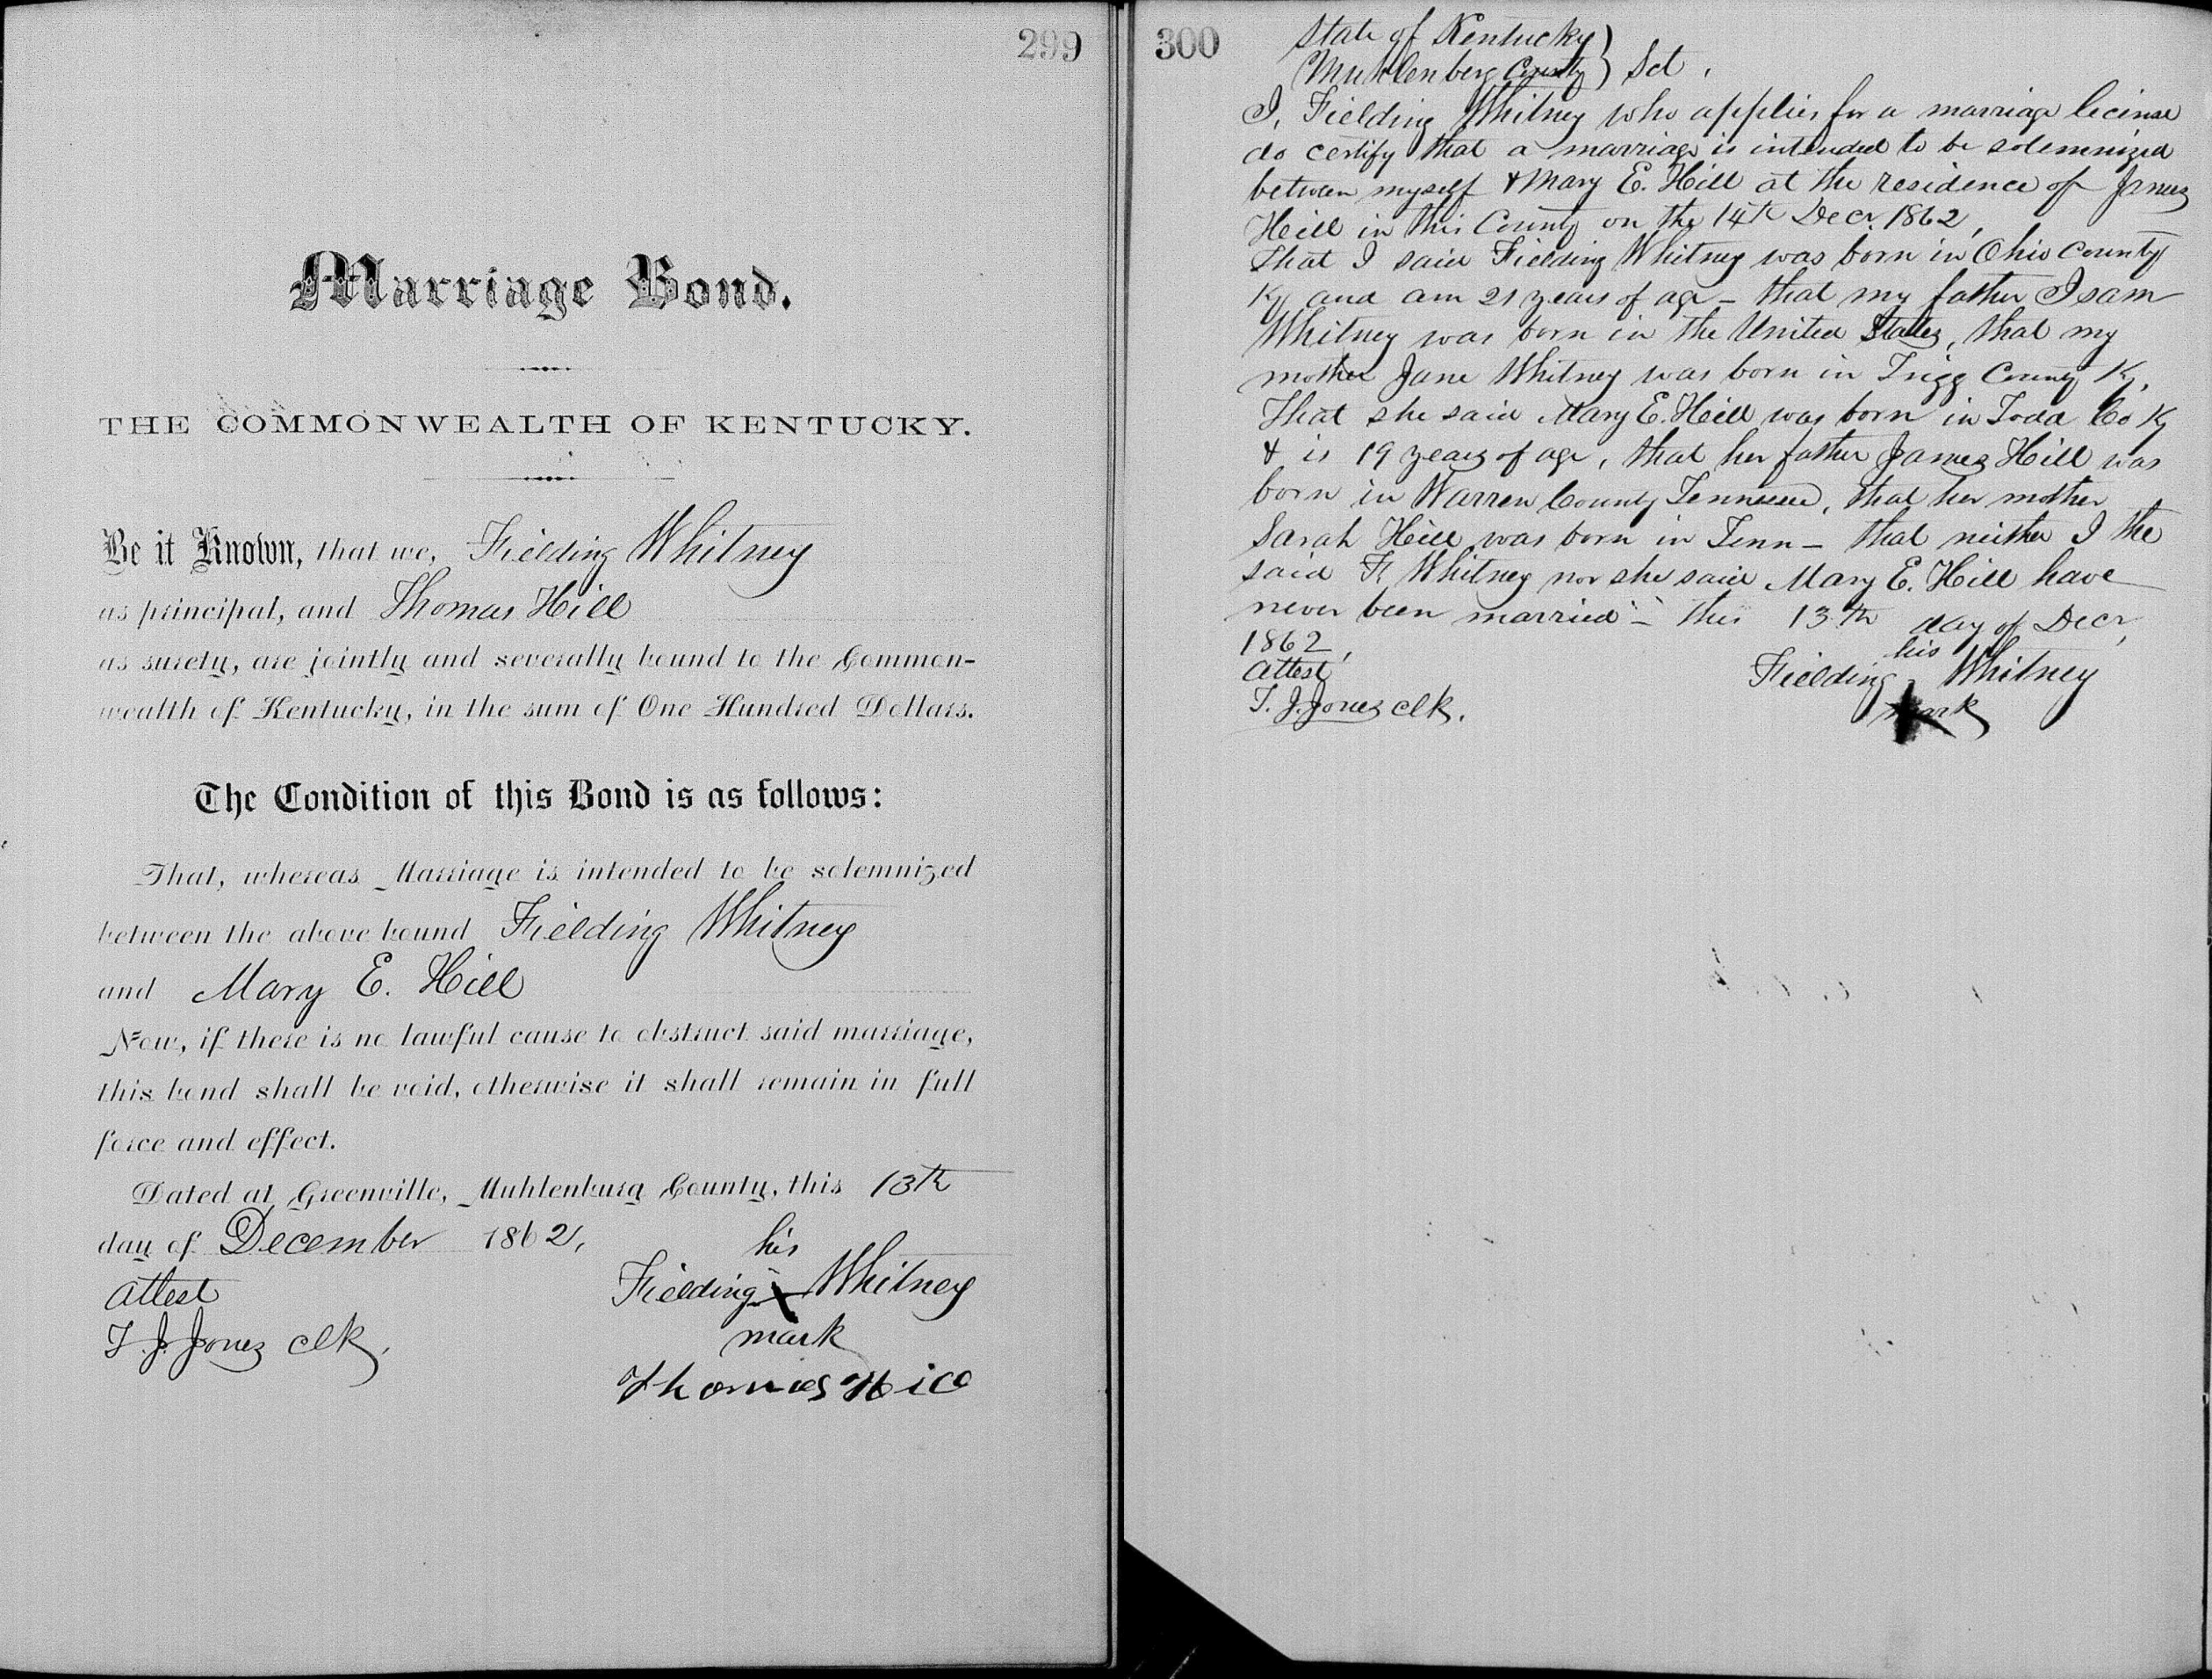 299
Marriage Bond.
THE COMMONWEALTH OF KENTUCKY.
Be it Known, that we, Fielding Whitney
as principal, and Thomas Hill
as surety, are jointly and severally bound to the Common-
wealth of Kentucky, in the sum of One Hundred Dollars.
The Condition of this Bond is as follows:
That, whereas Marriage is intended to be solemnized
between the above bound Fielding Whitney
and Mary E. Hill
Now, if there is no lawful cause to obstruct said marriage,
this bond shall be void, otherwise it shall remain in full
force and effect.
Dated at Greenville, Muhlenburg County, this 13th
day of December 1862,
his
Attest Fielding X Whitney
T. J. Jones Clk. mark
Thomas Hill
300
State of Kentucky }
Muhlenberg County } Sct.
I, Fielding Whitney who applies for a marriage license
do certify that a marriage is intended to be solemnized
between myself & Mary E. Hill at the residence of James
Hill in this County on the 14th Decr. 1862,
That I said Fielding Whitney was born in Ohio County
Ky and am 21 years of age - that my father Isam
Whitney was born in the United States, that my
mother Jane Whitney was born in Trigg County Ky.
That she said Mary E. Hill was born in Todd Co Ky
& is 19 years of age, that her father James Hill was
born in Warren County Tennessee, that her mother
Sarah Hill was born in Tenn - that neither I the
said F. Whitney nor she said Mary E. Hill have
never been married - this 13th day of Decr,
1862, his
Attest Fielding Whitney
T. J. Jones Clk. mark